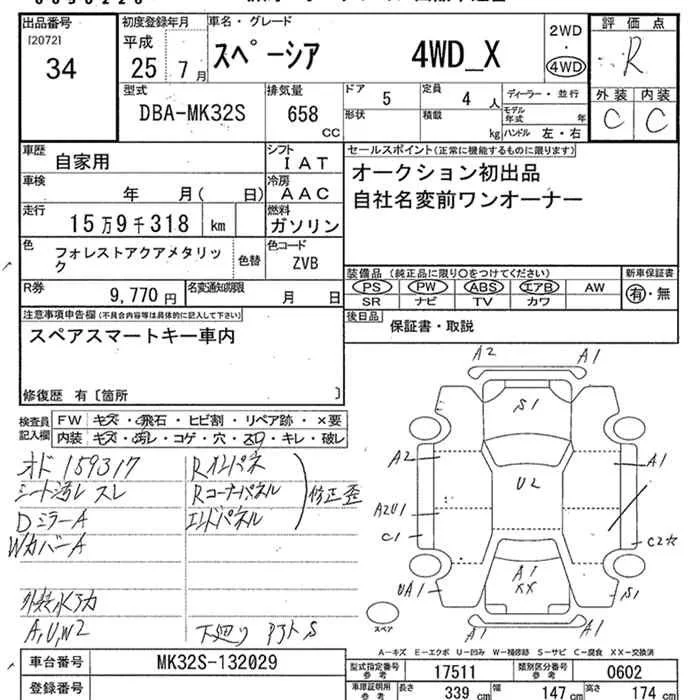 出品番号
I20721
34
初度登録年月
平成
25年 7月
車名・グレード
スペーシア 4WD_X
2WD
・
4WD
評価点
R
外装 内装
C C
型式
DBA-MK32S
排気量
658
CC
ドア 5
形状
定員 4 人
積載 kg
ディーラー・並行
モデル年式 年
ハンドル 左・右
車歴
自家用
シフト
IAT
車検
年 月( 日)
冷房
AAC
走行
15万9千318 km
燃料
ガソリン
色
フォレストアクアメタリック
色替
色コード
ZVB
R券
9,770円
名変通知期限
月 日
セールスポイント(正常に機能するものに限ります)
オークション初出品
自社名変前ワンオーナー
装備品 (純正品に限り○をつけてください)
PS PW ABS エアB AW
SR ナビ TV カワ
新車保証書
有・無
後日品
保証書・取説
注意事項申告欄(不具合内容等は具体的に記入して下さい)
スペアスマートキー車内
修復歴 有〔箇所 〕
検査員
記入欄
FW キズ・飛石・ヒビ割・リペア跡・×要
内装 キズ・汚レ・コゲ・穴・スレ・キレ・破レ
オド 159317
シート汚レ スレ
Dミラー A
Wカバー A
外装水アカ
A,U,W2
Rインパネ
Rコーナーパネル
エンドパネル
修正歪
下廻り サビト S
A2 A1
S1
A2 A1
U2
A2U1
C1 C2
UA1 A1 S1
XX
A1 A1
スペア
A－キズ E－エクボ U－凹み W－補修跡 S－サビ C－腐食 XX－交換済
車台番号
MK32S-132029
登録番号
型式指定番号
参考
17511
類別区分番号
参考
0602
車庫証明用
参考
長さ 339 cm
幅 147 cm
高さ 174 cm